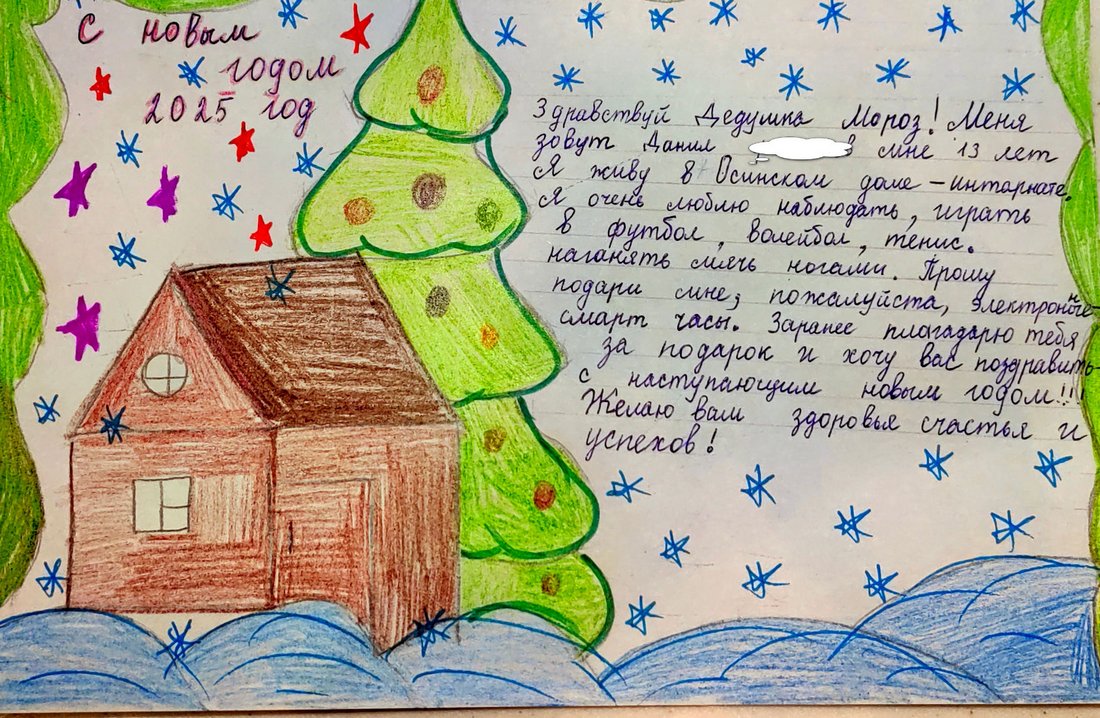 С новым
годом
2025 год
Здравствуй Дедушка Мороз! Меня
зовут Данил в мне 13 лет
Я живу в Осинском доме-интарнате.
Я очень люблю наблюдать, играть
в футбол, волейбол, тенис.
наганять мячь ногами. Прошу
подари мне, пожалуйста, электронные
смарт часы. Заранее плагадарю тебя
за подарок и хочу вас поздравить
с наступающим новым годом!!!
Желаю вам здоровья счастья и
успехов!